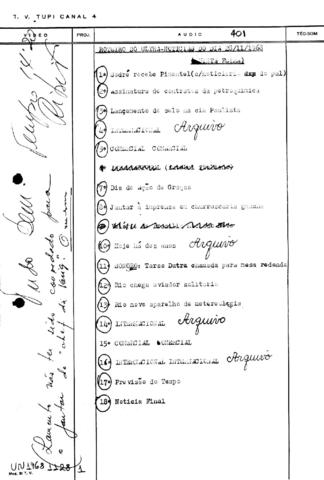 T. V. TUPI CANAL 4
VIDEO PROJ. AUDIO 401 TECSOM
ROTEIRO DO ULTRA-NOTICIAS DO DIA 28/11/1963
1- Sodré recebe Pimentel
2- Assinatura de contratos da petroquímica
3- Lançamento de selo na cia Paulista
4- INTERNACIONAL Arquivo
5- COMERCIAL COMERCIAL
7- Dia de ação de Graças
8- Jantar à imprensa em churrascaria gaucha
10- Hoje há dez anos Arquivo
11- Tarso Dutra chamada para mesa redonda
12- Rio chega aviador solitario
13- Rio novo aparelho de metereologia
14- INTERNACIONAL Arquivo
15- COMERCIAL COMERCIAL
16- INTERNACIONAL INTERNACIONAL Arquivo
17- Previsão do Tempo
18- Noticia Final
Tudo bem!
Lamento não ter sido convidado para
o jantar do "chef da Varig"
UN1963 1